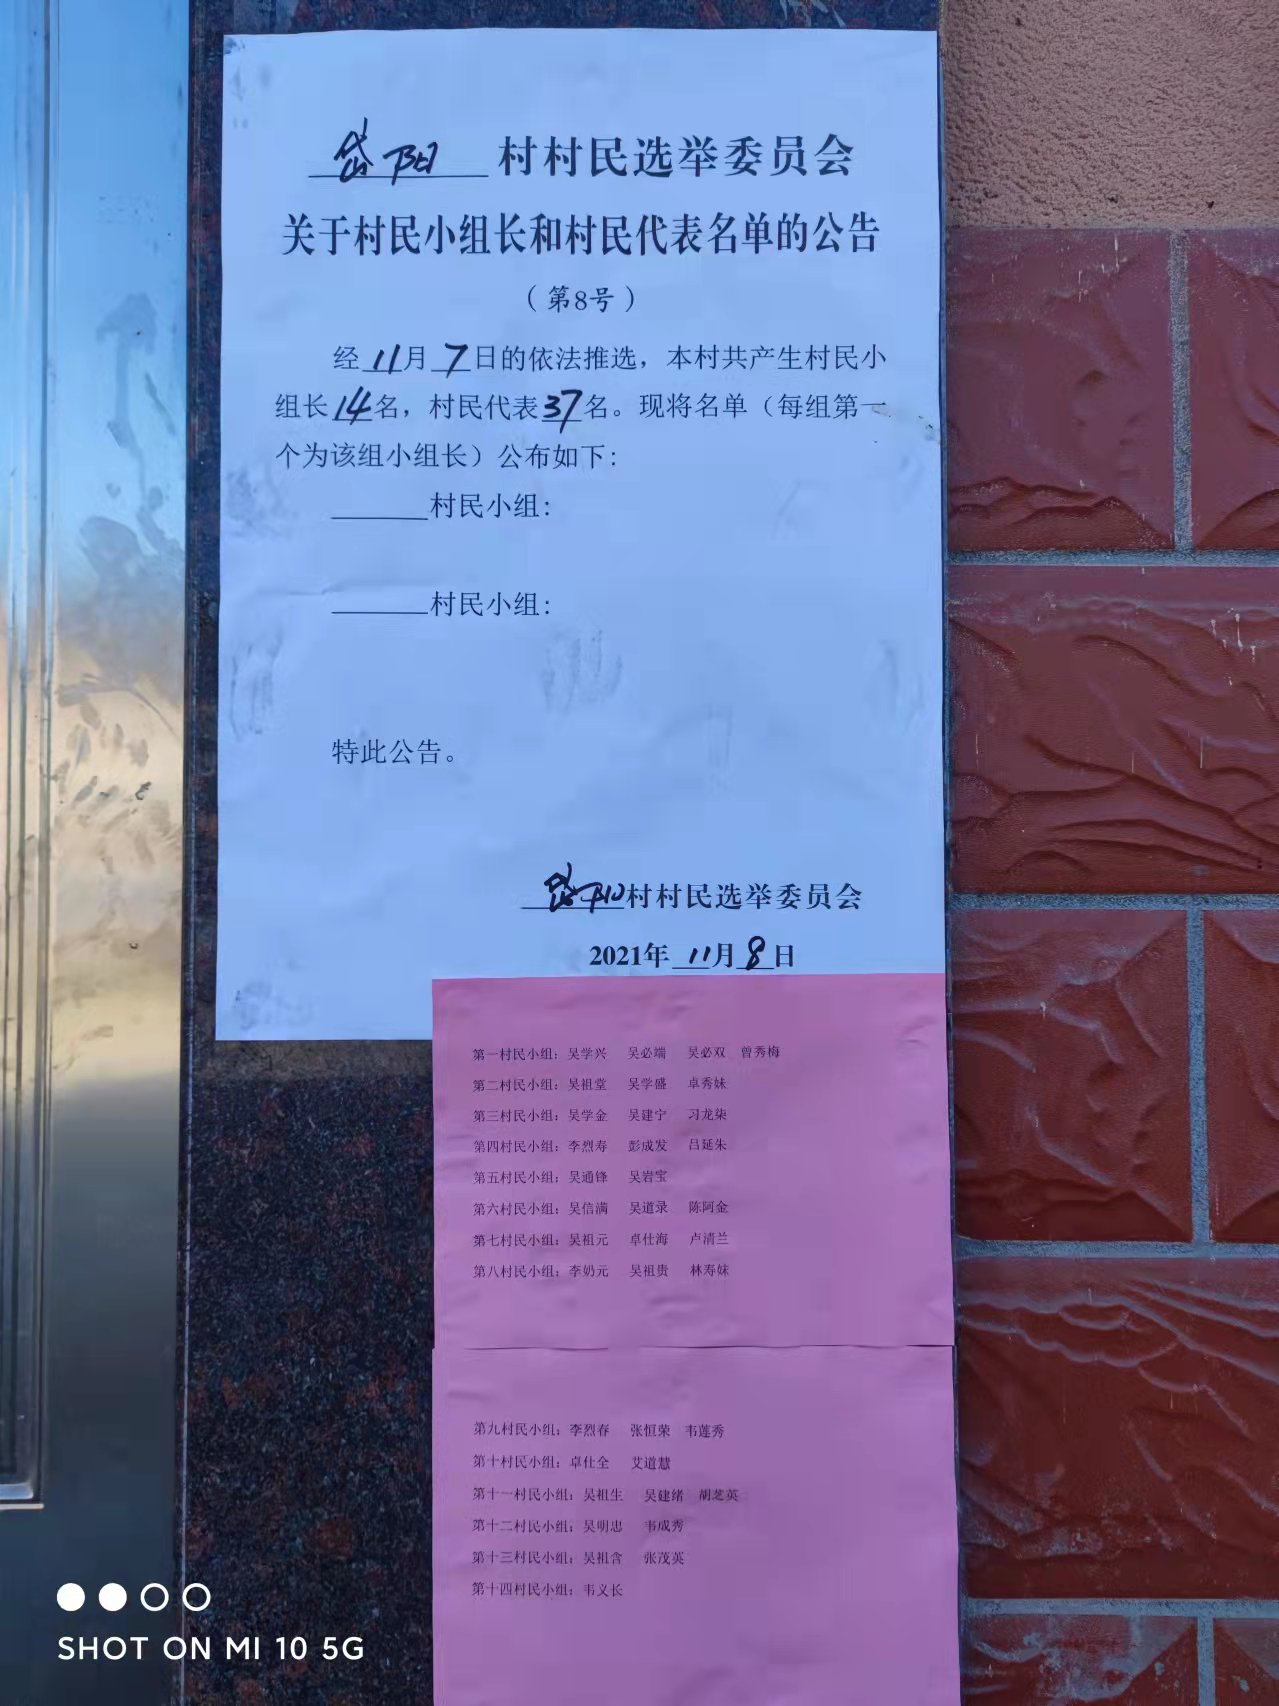 岱阳村村民选举委员会
关于村民小组长和村民代表名单的公告
（第8号）
经11月7日的依法推选，本村共产生村民小
组长14名，村民代表37名。现将名单（每组第一
个为该组小组长）公布如下：
______村民小组：
______村民小组：
特此公告。
岱阳村村民选举委员会
2021年11月8日
第一村民小组：吴学兴 吴必端 吴必双 曾秀梅
第二村民小组：吴祖堂 吴学盛 卓秀妹
第三村民小组：吴学金 吴建宁 习龙柒
第四村民小组：李烈寿 彭成发 吕延朱
第五村民小组：吴通锋 吴岩宝
第六村民小组：吴信满 吴道录 陈阿金
第七村民小组：吴祖元 卓仕海 卢清兰
第八村民小组：李奶元 吴祖贵 林寿妹
第九村民小组：李烈春 张恒荣 韦莲秀
第十村民小组：卓仕全 艾道慧
第十一村民小组：吴祖生 吴建绪 胡芝英
第十二村民小组：吴明忠 韦成秀
第十三村民小组：吴祖含 张茂英
第十四村民小组：韦义长
SHOT ON MI 10 5G